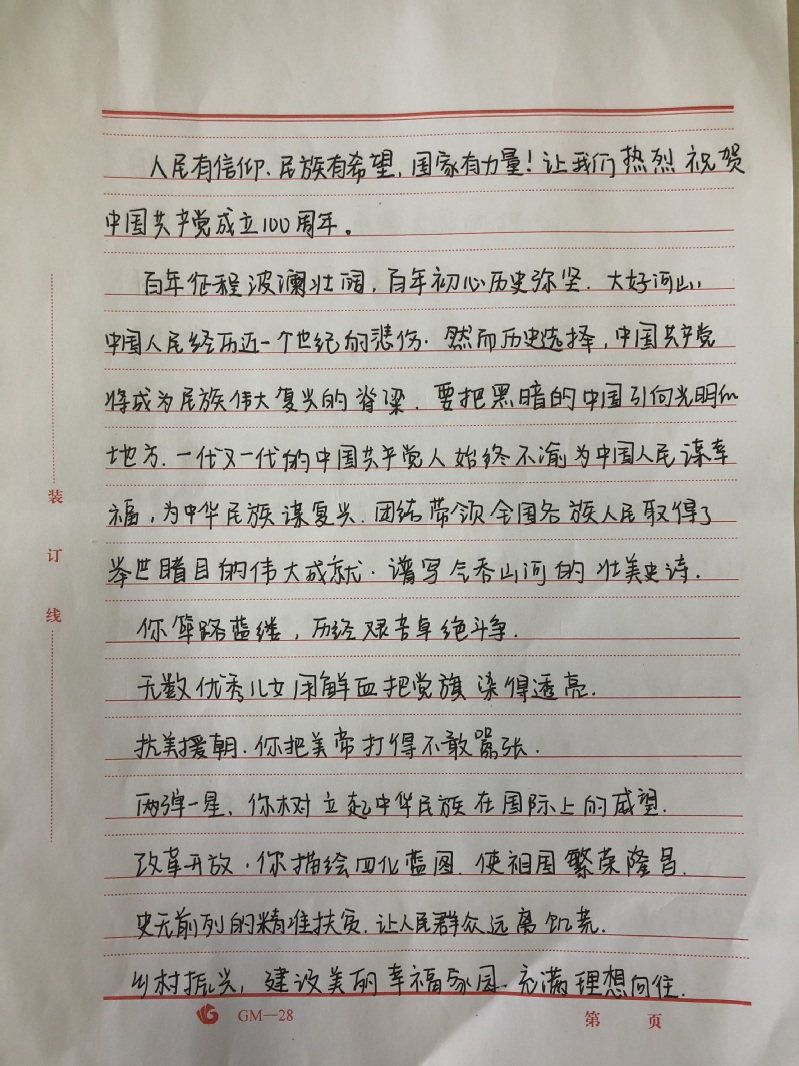 人民有信仰、民族有希望,国家有力量!让我们热烈祝贺
中国共产党成立100周年。
百年征程波澜壮阔,百年初心历史弥坚.大好河山,
中国人民经历近一个世纪的悲伤.然而历史选择,中国共产党
将成为民族伟大复兴的脊梁.要把黑暗的中国引向光明的
地方.一代又一代的中国共产党人始终不渝为中国人民谋幸
福,为中华民族谋复兴.团结带领全国各族人民取得了
举世瞩目的伟大成就.谱写气吞山河的壮美史诗.
你筚路蓝缕,历经艰苦卓绝斗争.
无数优秀儿女用鲜血把党旗染得透亮.
抗美援朝.你把美帝打得不敢嚣张.
两弹一星,你树立起中华民族在国际上的威望.
改革开放.你描绘四化蓝图.使祖国繁荣隆昌.
史无前列的精准扶贫.让人民群众远离饥荒.
乡村振兴,建设美丽幸福家园.充满理想向往.
装
订
线
GM—28
第 页